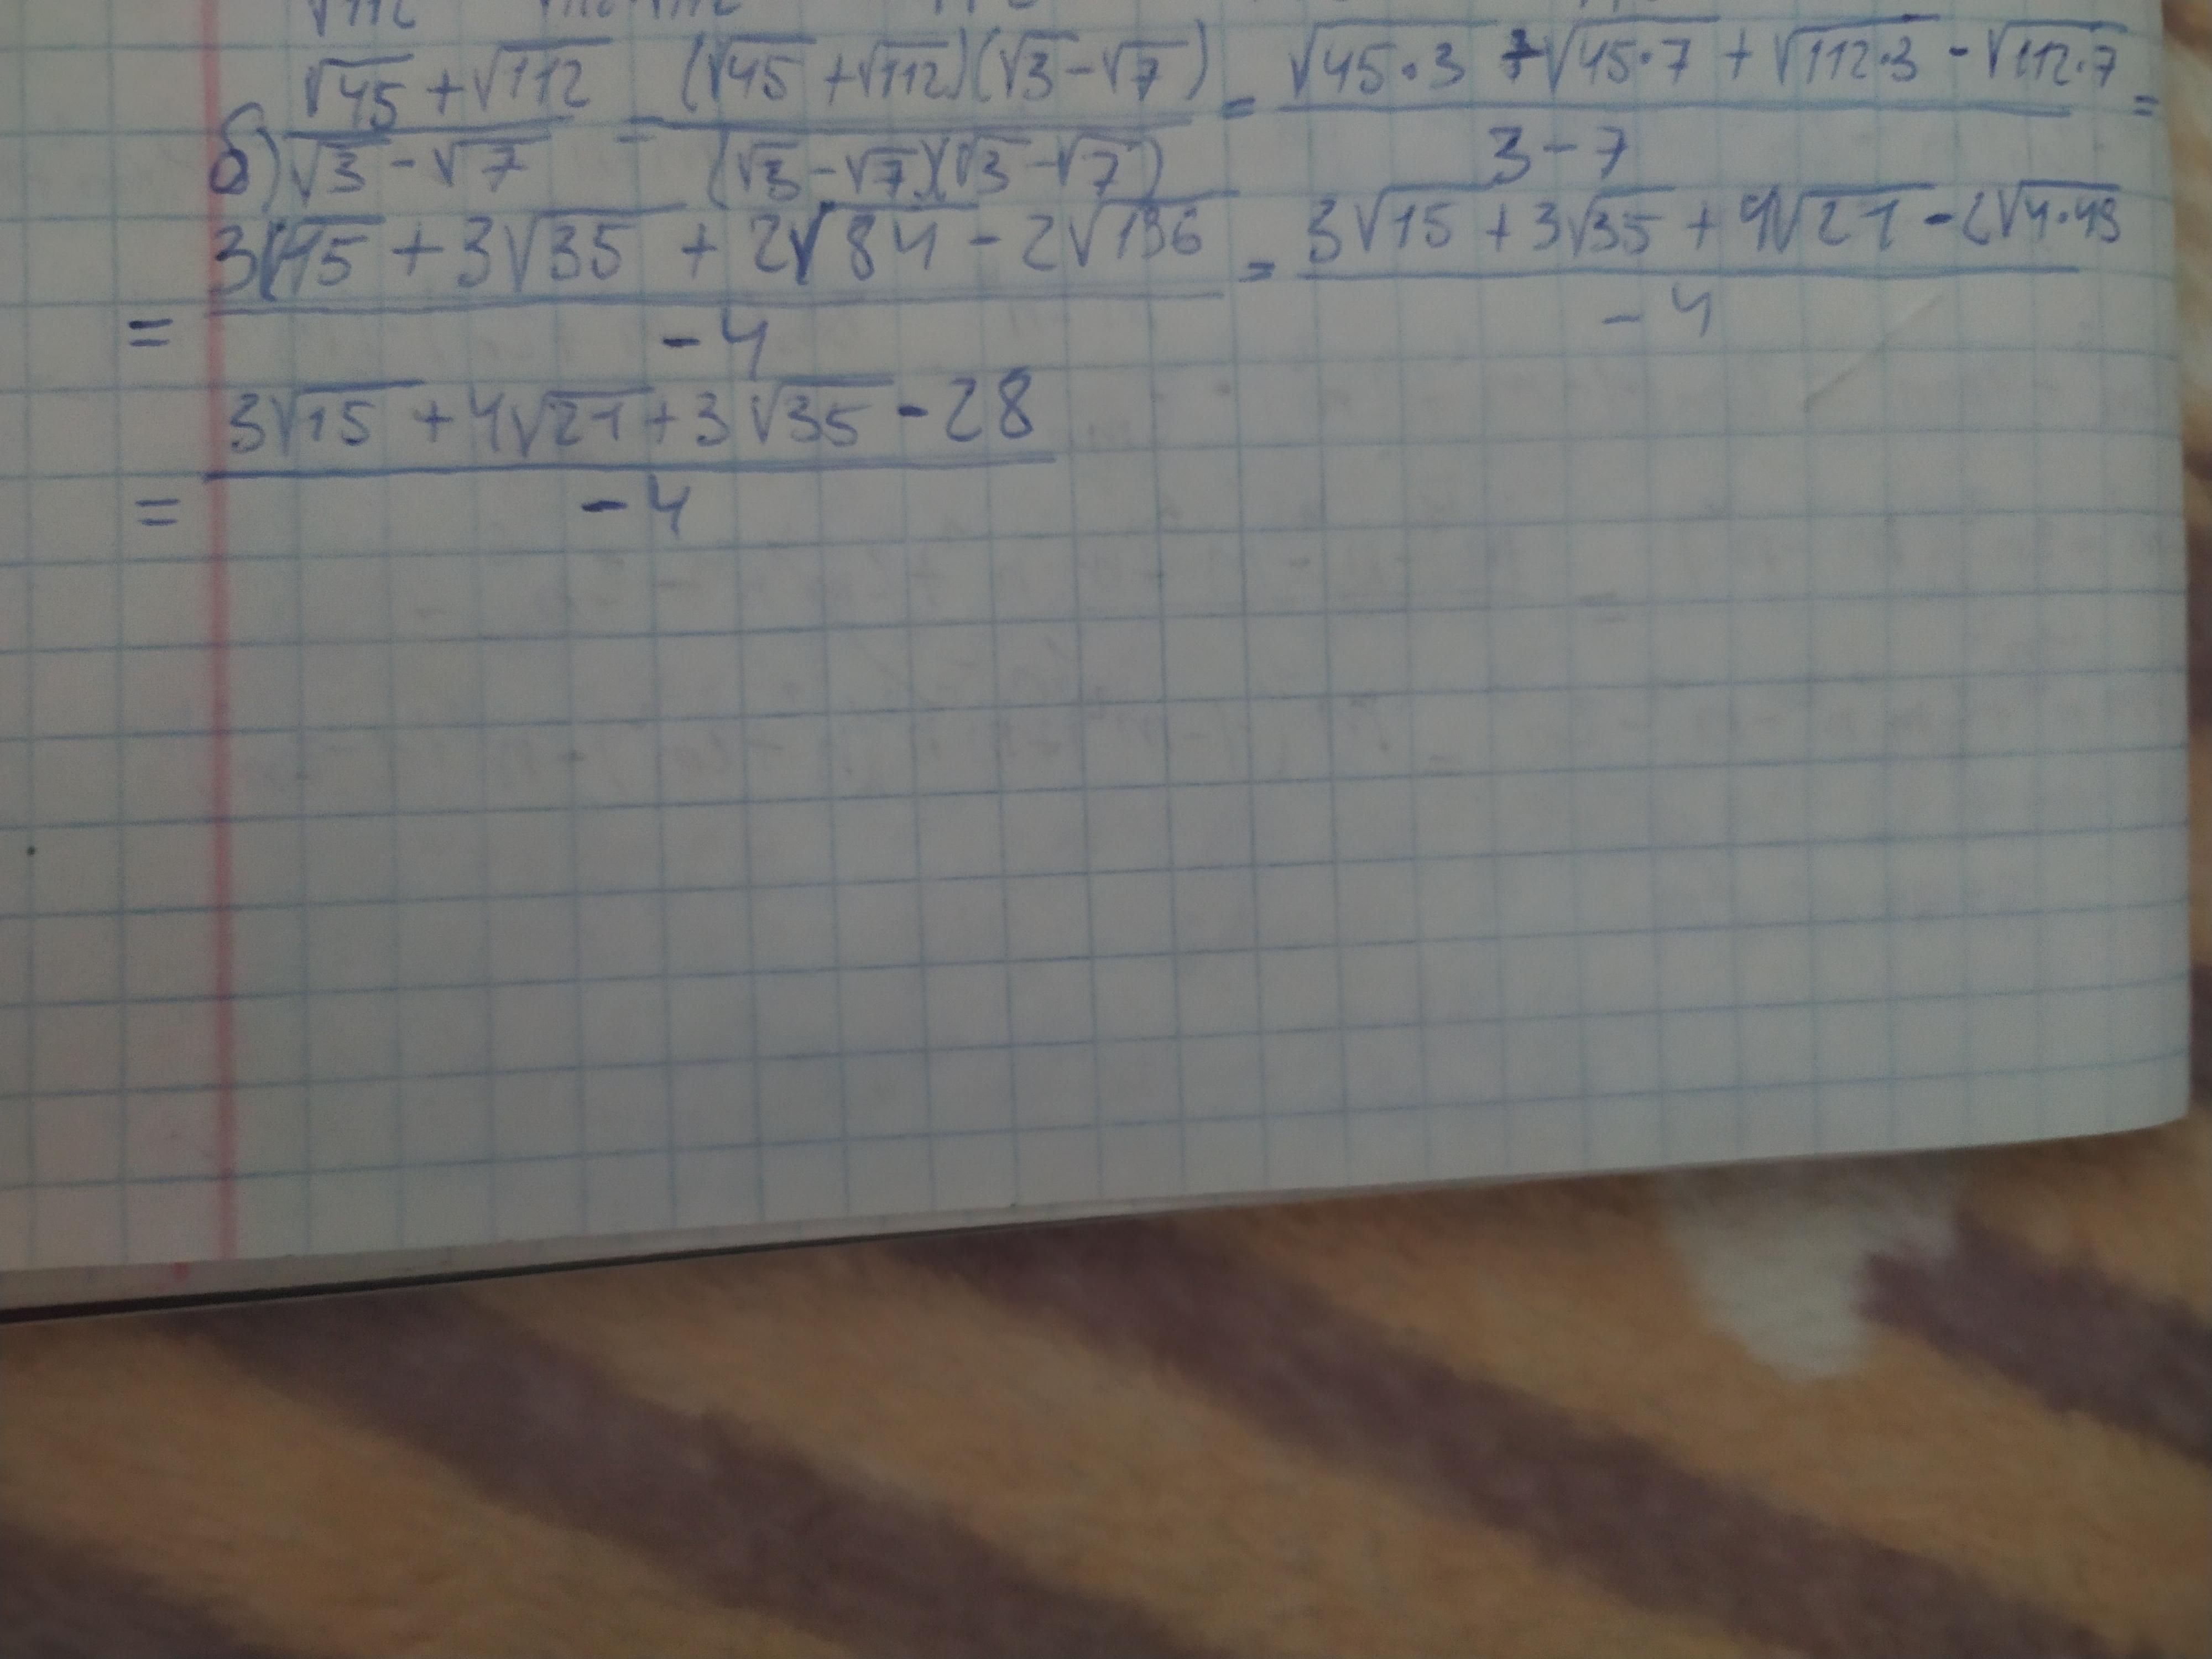 б) (√45 + √112)/(√3 - √7) = ((√45 + √112)(√3 - √7))/((√3 - √7)(√3 - √7)) = (√45·3 + √45·7 + √112·3 - √112·7)/(3 - 7) =
= (3√15 + 3√35 + 2√84 - 2√196)/(-4) = (3√15 + 3√35 + 4√21 - 2√4·49)/(-4)
= (3√15 + 4√21 + 3√35 - 28)/(-4)